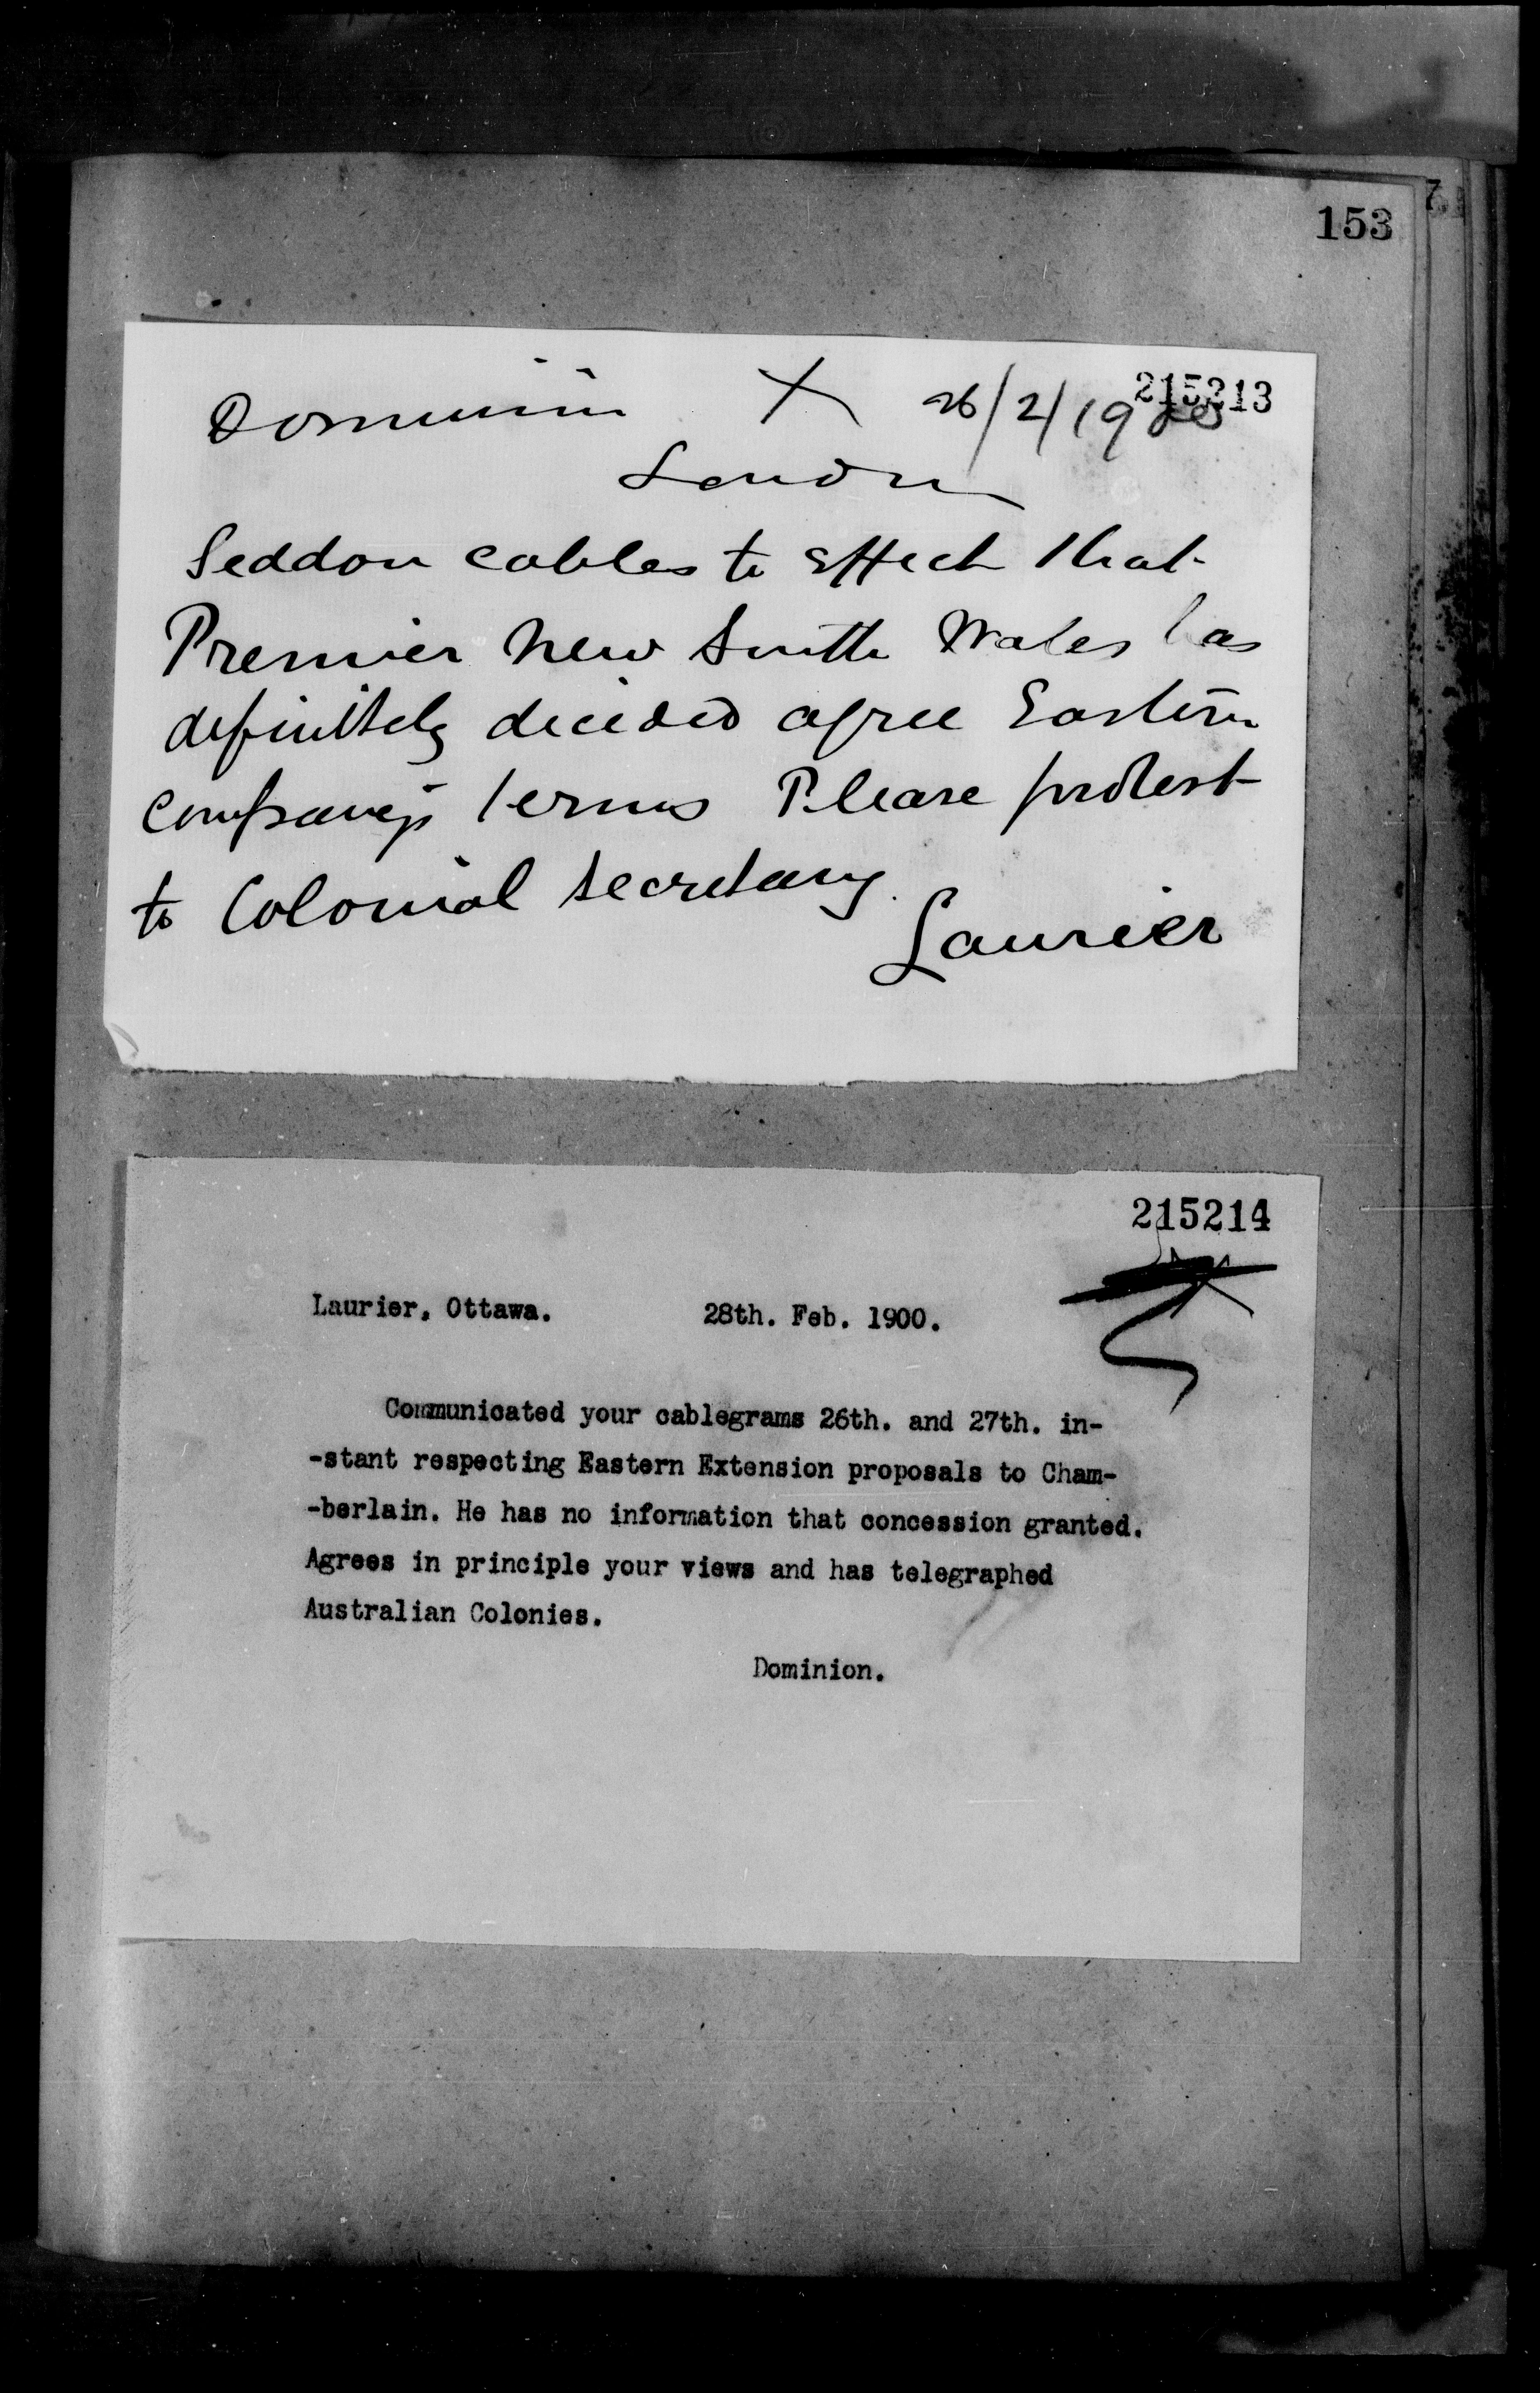 153
215213
Dominion X 26/2/1900
London
Seddon cables to effect that
Premier New South Wales has
definitely decided agree Eastern
company's terms Please protest
to Colonial Secretary.
Laurier
215214
Laurier, Ottawa. 28th. Feb. 1900.
Communicated your cablegrams 26th. and 27th. in-
-stant respecting Eastern Extension proposals to Cham-
-berlain. He has no information that concession granted.
Agrees in principle your views and has telegraphed
Australian Colonies.
Dominion.